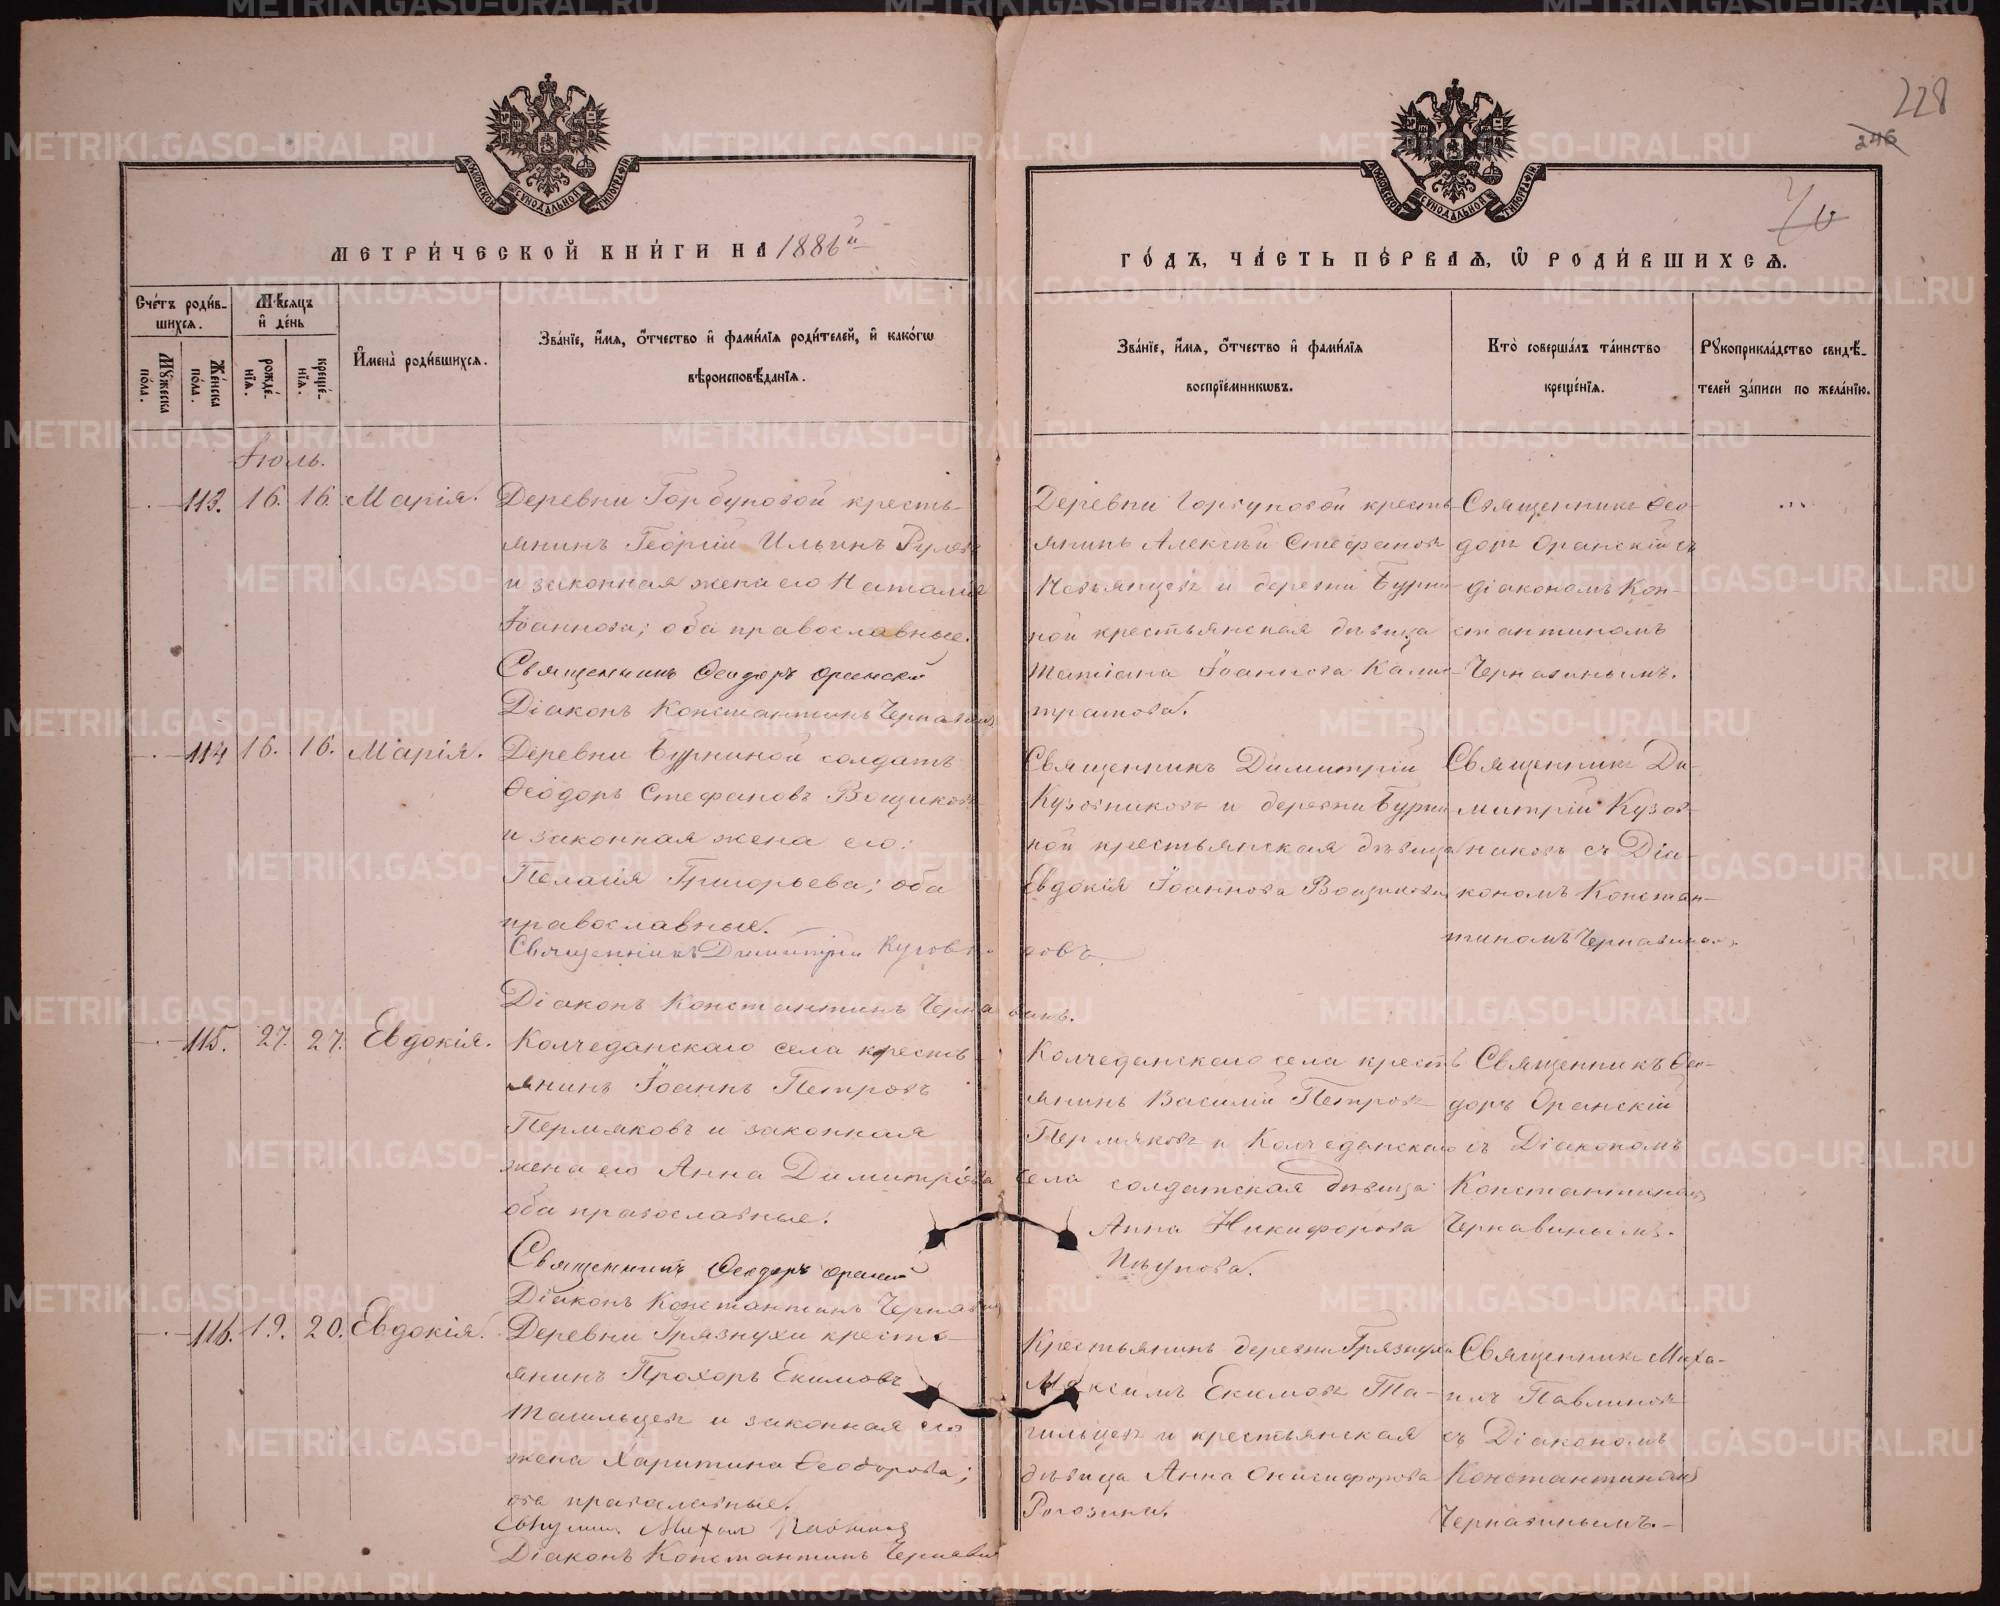 228
246
МОСКОВСКОЙ СѴНОДАЛЬНОЙ ТИПОГРАФІИ
МОСКОВСКОЙ СѴНОДАЛЬНОЙ ТИПОГРАФІИ
МЕТРИ́ЧЕСКОЙ КНИ́ГИ НА 1886й
ГО́ДЪ, ЧА́СТЬ ПЕ́РВАѦ, Ѡ РОДИ́ВШИХСѦ.
Сче́тъ роди́в-
шихсѧ.
Мꙋ́жеска по́ла.
Же́нска по́ла.
Мѣ́сѧцъ
и҆ де́нь
рожде́нїѧ.
креще́нїѧ.
И҆мена̀ роди́вшихсѧ.
Зва́нїе, и҆́мѧ, ѻ҆́тчество и҆ фами́лїѧ роди́телей, и҆ како́гѡ
вѣроисповѣ́данїѧ.
Зва́нїе, и҆́мѧ, ѻ҆́тчество и҆ фами́лїѧ
воспрїе́мникѡвъ.
Кто̀ соверша́лъ та́инство
креще́нїѧ.
Рꙋкоприкла́дство свидѣ́-
телей за́писи по жела́нїю.
Іюль.
113. 16. 16. Марія.
Деревни Горбуновой кресть-
янинъ Георгій Ильинъ
и законная жена его Наталія
Іоаннова; оба православные.
Священникъ Ѳеодоръ Оранскій
Діаконъ Константинъ Чернавинъ
Деревни Горбуновой кресть-
янинъ Алексѣй Стефановъ
Невьянцевъ и деревни Бурни-
ной крестьянская дѣвица
Татіана Іоаннова Калис-
тратова.
Священникъ Ѳео-
доръ Оранскій съ
діакономъ Кон-
стантиномъ
Чернавинымъ.
114 16. 16. Марія.
Деревни Бурниной солдатъ
Ѳеодоръ Стефановъ Вощиковъ
и законная жена его:
Пелагія Григорьева; оба
православные.
Священникъ Димитрій Кузовниковъ
Діаконъ Константинъ Чернавинъ.
Священникъ Димитрій
Кузовниковъ и деревни Бурни-
ной крестьянская дѣвица
Евдокія Іоаннова Вощикова
Священникъ Ди-
митрій Кузов-
никовъ съ Діа-
кономъ Констан-
тиномъ Чернавинымъ
115. 27. 27. Евдокія.
Колчеданскаго села кресть-
янинъ Іоаннъ Петровъ
Пермяковъ и законная
жена его Анна Димитріева
оба православные.
Священникъ Ѳеодоръ Оранскій
Діаконъ Константинъ Чернавинъ
Колчеданскаго села кресть-
янинъ Василій Петровъ
Пермяковъ и Колчеданскаго
села солдатская дѣвица
Анна Никифорова
Священникъ Ѳео-
доръ Оранскій
съ Діакономъ
Константиномъ
Чернавинымъ.
116. 19. 20. Евдокія.
Деревни Грязнухи кресть-
янинъ Прохоръ Екимовъ
Тагильцевъ и законная его
жена Харитина Ѳеодорова;
оба православные.
Священникъ Михаилъ Павлиновъ
Діаконъ Константинъ Чернавинъ
Крестьянинъ деревни Грязнухи
Максимъ Екимовъ Та-
гильцевъ и крестьянская
дѣвица Анна Онисифорова
Рогозина.
Священникъ Миха-
илъ Павлиновъ
съ Діакономъ
Константиномъ
Чернавинымъ.-
METRIKI.GASO-URAL.RU